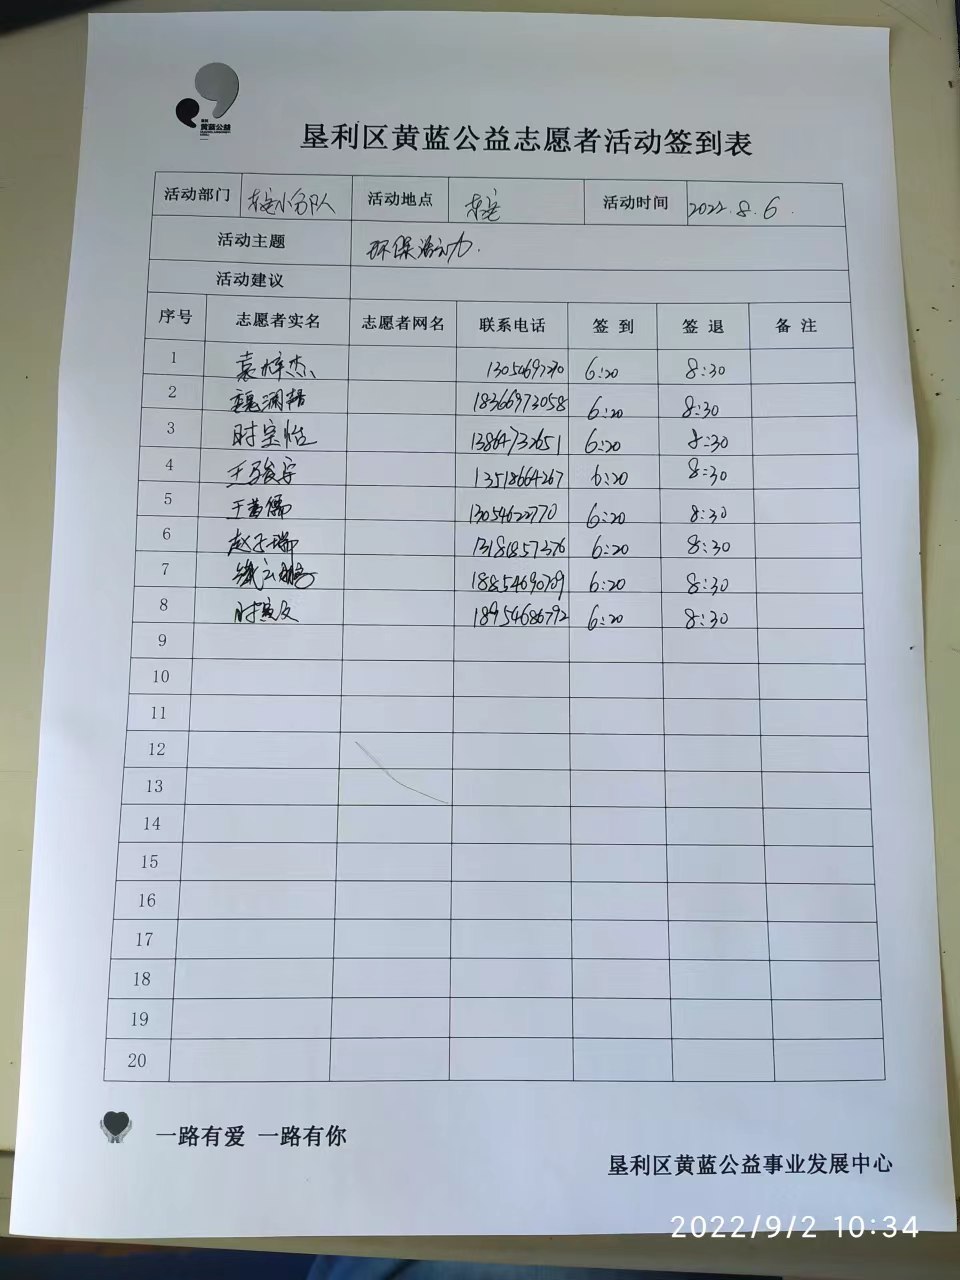 黄蓝公益
垦利区黄蓝公益志愿者活动签到表
活动部门 小分队 活动地点 活动时间 2022.8.6.
活动主题 环保活动.
活动建议
序号 志愿者实名 志愿者网名 联系电话 签到 签退 备注
1 袁梓杰 6:20 8:30
2 18366973058 6:20 8:30
3 时宝怡 13864732651 6:20 8:30
4 王骏宇 13518664267 6:20 8:30
5 13054622770 6:20 8:30
6 赵子瑞 13181857376 6:20 8:30
7 18854690709 6:20 8:30
8 18954686792 6:20 8:30
9
10
11
12
13
14
15
16
17
18
19
20
一路有爱 一路有你
垦利区黄蓝公益事业发展中心
2022/9/2 10:34